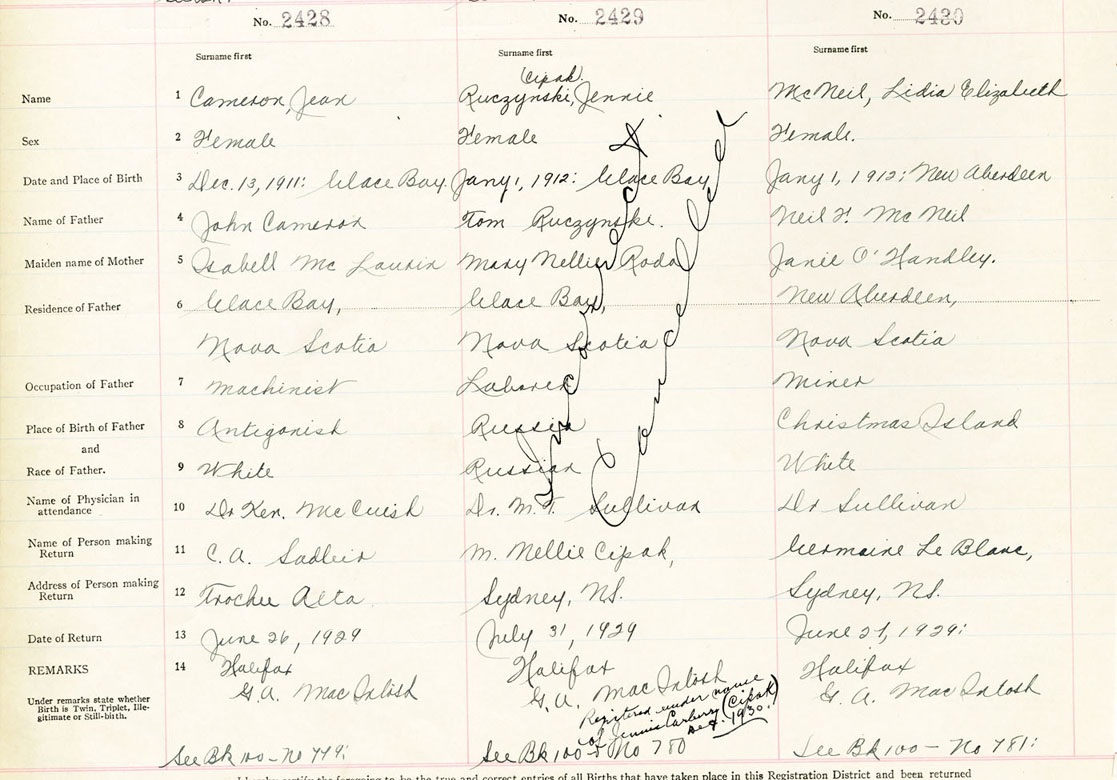 No. 2428 No. 2429 No. 2430
Surname first Surname first Surname first
Cipak
Name 1 Cameron, Jean Ruczynski, Jennie McNeil, Lidia Elizabeth
Sex 2 Female Female Female.
Date and Place of Birth 3 Dec. 13, 1911: Glace Bay. Jany 1, 1912: Glace Bay Jany 1, 1912: New Aberdeen
Name of Father 4 John Cameron Tom Ruczynski. Neil F. McNeil
Maiden name of Mother 5 Isabell McLaurin Mary Nellie Roda Janie O'Handley.
Residence of Father 6 Glace Bay, Glace Bay, New Aberdeen,
Nova Scotia Nova Scotia Nova Scotia
Occupation of Father 7 Machinist Laborer Miner
Place of Birth of Father 8 Antigonish Russia Christmas Island
and
Race of Father. 9 White Russian White
Name of Physician in
attendance 10 Dr Ken. McCuish Dr. M. T. Sullivan Dr Sullivan
Name of Person making
Return 11 C. A. Sadleir M. Nellie Cipak, Germaine Le Blanc,
Address of Person making
Return 12 Trochu Alta. Sydney, N.S. Sydney, N.S.
Date of Return 13 June 26, 1929 July 31, 1929 June 27, 1929:
REMARKS 14 Halifax Halifax Halifax
G. A. MacIntosh G. A. MacIntosh G. A. MacIntosh
Under remarks state whether
Birth is Twin, Triplet, Ille-
gitimate or Still-birth.
Registered under name
of Jennie Carberry (Cipak)
1930.
Incorrect
Cancelled
See Bk 100 - No 779: See Bk 100 - No 780 See Bk 100 - No 781:
I hereby certify the foregoing to be the true and correct entries of all Births that have taken place in this Registration District and been returned